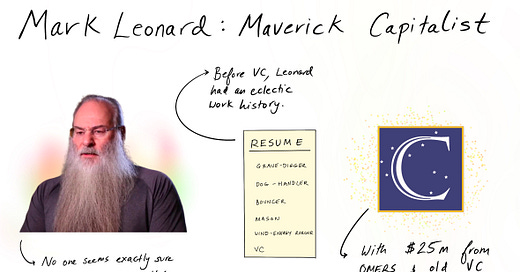 Mark Leonard: Maverick Capitalist
Before VC, Leonard
had an eclectic
work history.
RESUME
GRAVE-DIGGER
DOG-HANDLER
BOUNCER
MASON
WIND-ENERGY
VC
C
No one seems exactly sure
With $25m from
OMERS & old VC